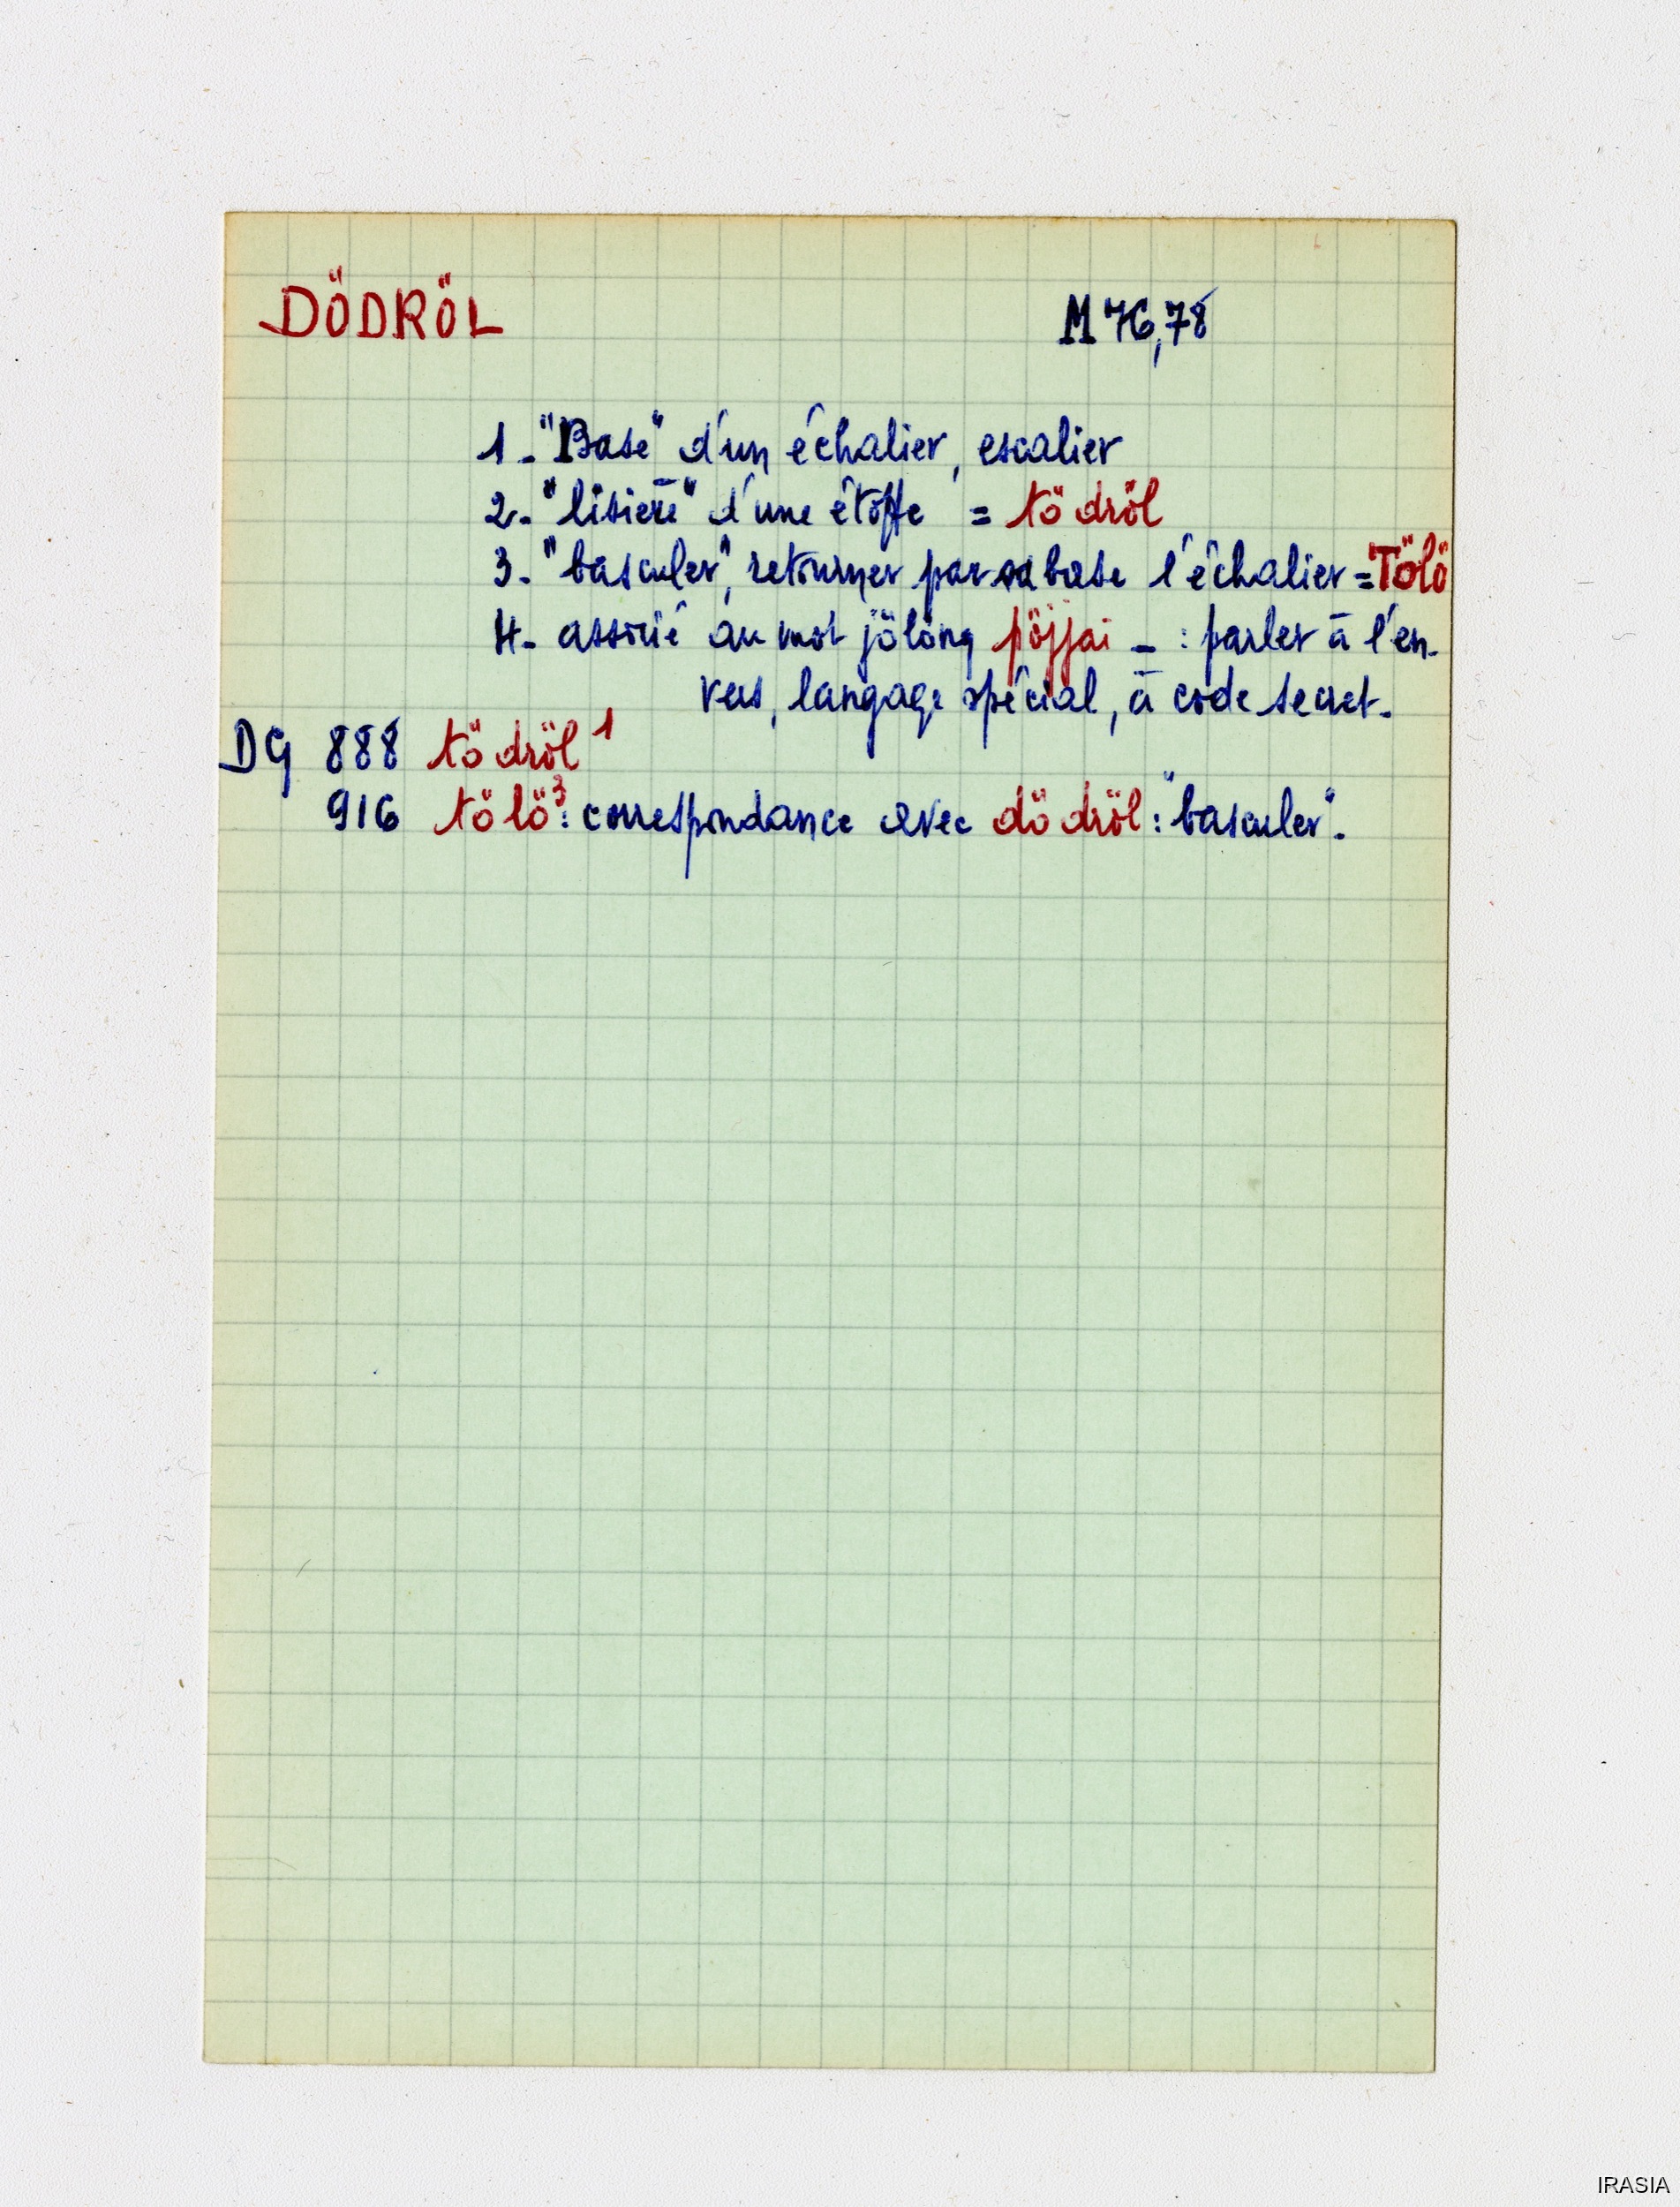 DÖDRÖL M 76,78
1 - "Base" d'un échalier, escalier
2 - "lisière" d'une étoffe = tödröl
3 - "basculer", retourner par sa base l'échalier = Tölö
4 - associé au mot jölöng pöjjai - : parler à l'en-
vers, langage spécial, à code secret.
DG 888 tödröl 1
916 tölö 3 : correspondance avec dödröl : "basculer".
IRASIA